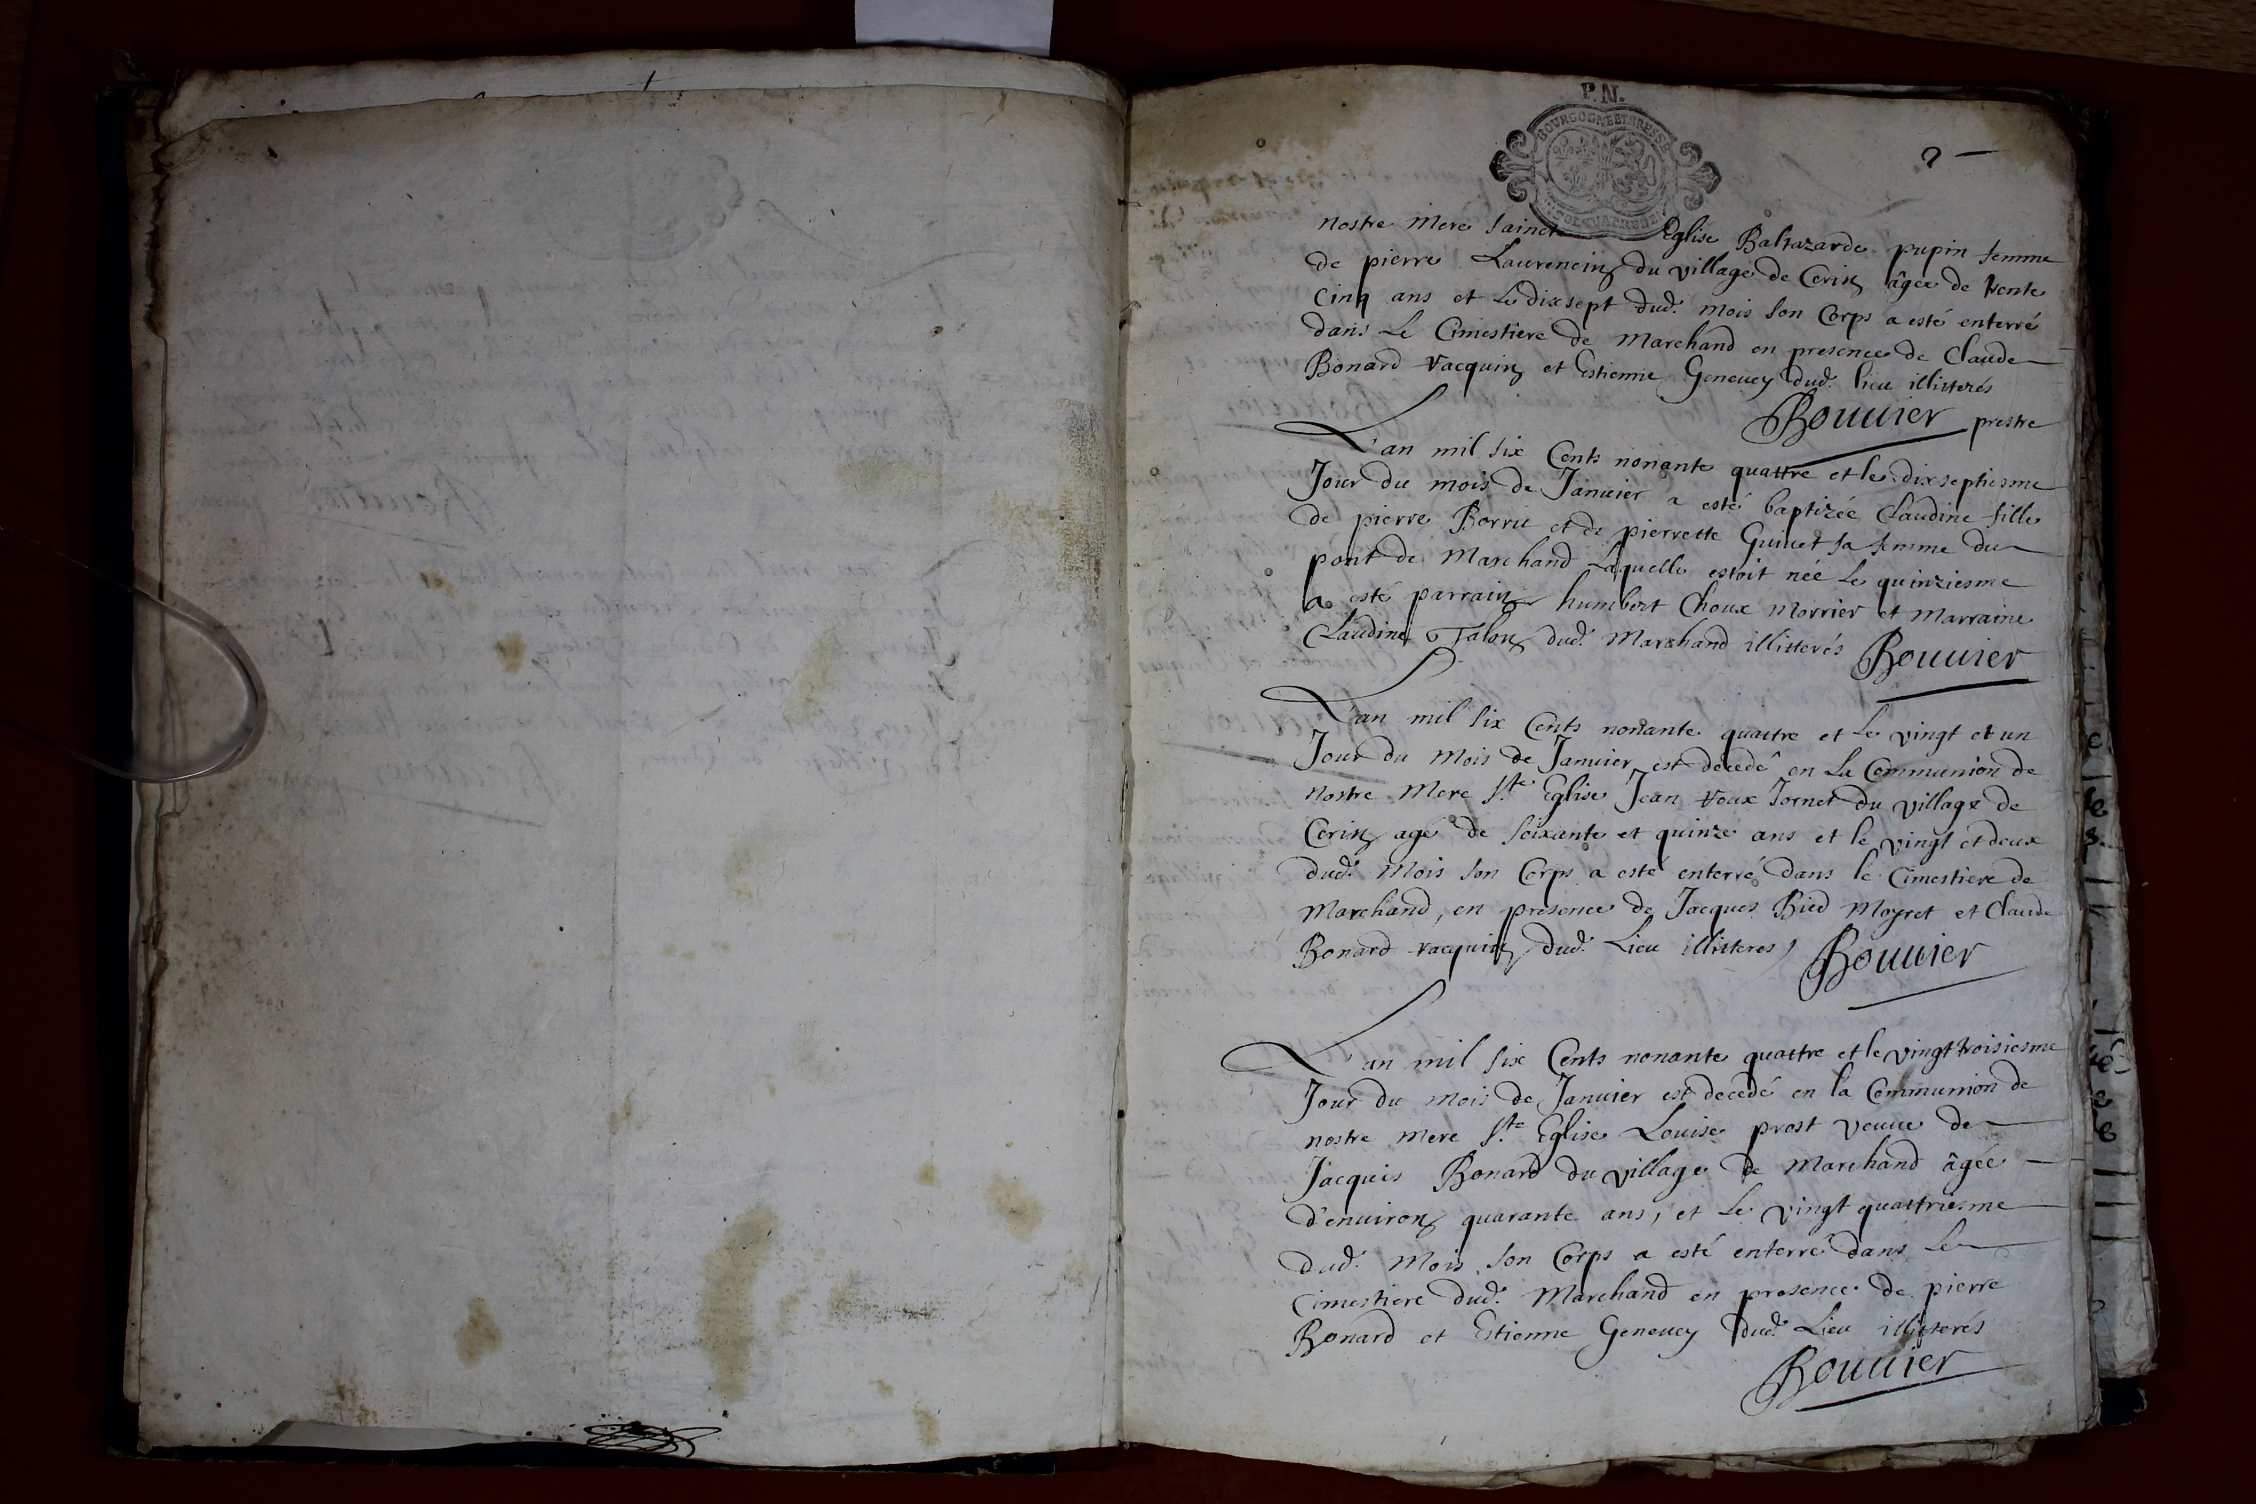 P.N.
BOURGOGNE ET BRESSE
2
nostre mere saincte Eglise Baltazarde pupin femme
de pierre Laurencin du village de Cerin âgée de trente
cinq ans et le dixsept dud. mois son Corps a esté enterré
dans le Cimestiere de Marchand en presence de Claude
Bonard vacquin et Estienne Geneuey dud. lieu illitterés
Bouuier prestre
L'an mil six Cents nonante quattre et le dixseptiesme
Jour du mois de Januier a esté baptizée Claudine fille
de pierre Borrit et de pierrette Guinet sa femme du
pont de Marchand Laquelle estoit née le quinziesme
a esté parrain humbert Choux Morrier et Marraine
Claudine Talon dud. Marchand illitterés Bouuier
L'an mil six Cents nonante quattre et le vingt et un
Jour du Mois de Januier est decedé en La Communion de
nostre Mere Ste Eglise Jean Voux Jornet du village de
Cerin agé de soixante et quinze ans et le vingt et deux
dud. Mois son Corps a esté enterré dans le Cimestiere de
Marchand, en presence de Jacques Bied Moyret et Claude
Bonard vacquin dud. Lieu illitteres Bouuier
L'an mil six Cents nonante quattre et le vingt troisiesme
Jour du mois de Januier est decedé en la Communion de
nostre mere Ste Eglise Louise prost veuue de
Jacques Bonard du village de Marchand âgée
d'enuiron quarante ans, et Le vingt quattriesme
dud. Mois son Corps a esté enterré dans Le
Cimestiere dud. Marchand en presence de pierre
Bonard et Estienne Geneuey dud. Lieu illitterés
Bouuier